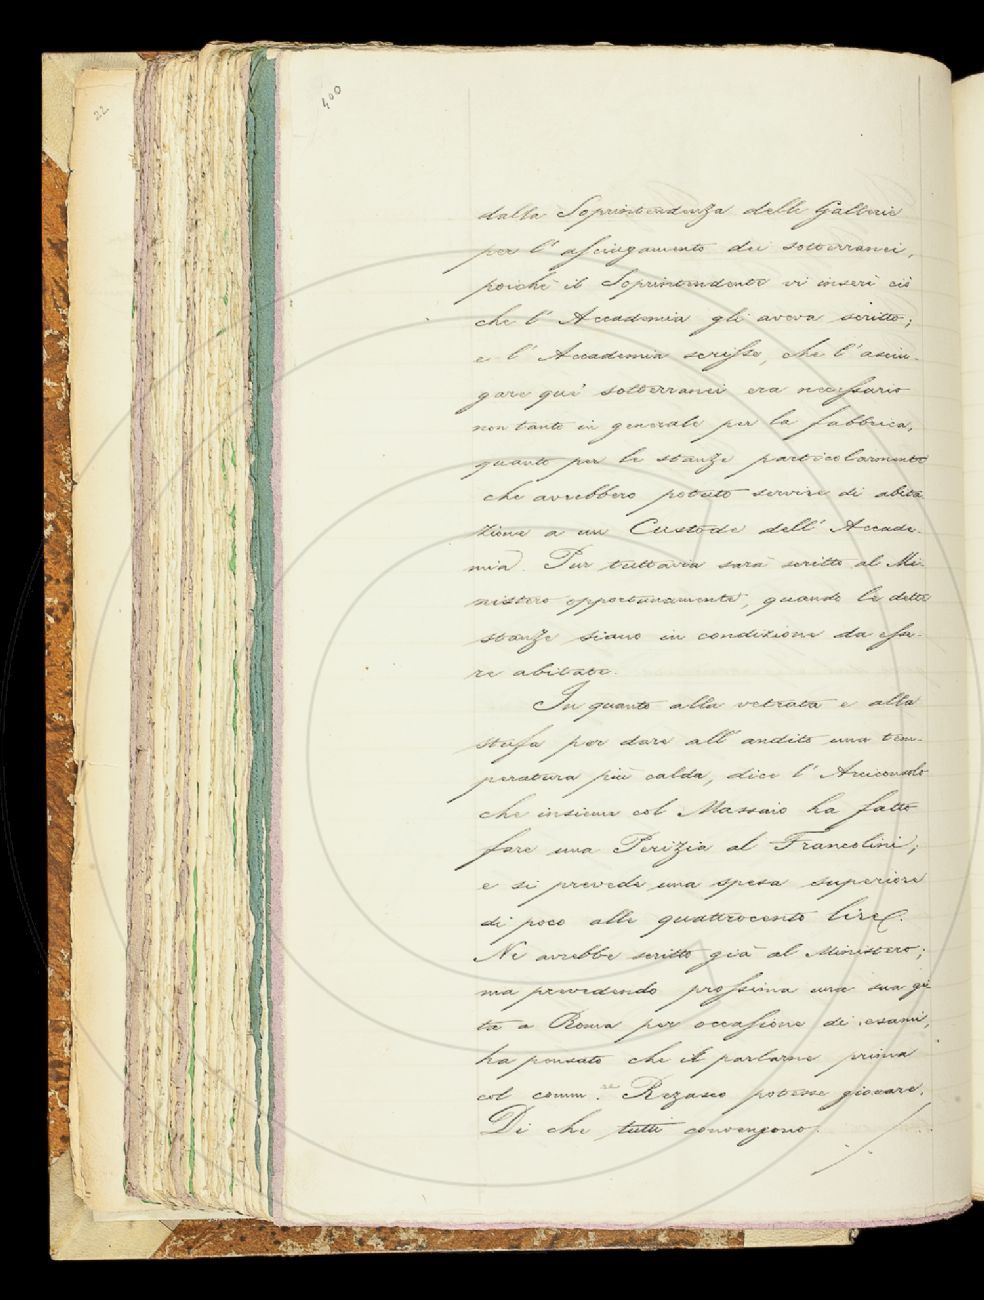 22
400
dalla Soprintendenza delle Gallerie
per l'asciugamento dei sotterranei,
poichè il Soprintendente vi inserì ciò
che l'Accademia gli aveva scritto;
e l'Accademia scrisse, che l'asciu-
gare que' sotterranei era necessario
non tanto in generale per la fabbrica,
quanto per le stanze particolarmente
che avrebbero potuto servire di abita
zione a un Custode dell'Accade-
mia. Pur tuttavia sarà scritto al Mi-
nistero opportunamente, quando le dette
stanze siano in condizione da esse-
re abitate.
In quanto alla vetrata e alla
stufa per dare all'andito una tem-
peratura più calda, dice l'Arciconsolo
che insieme col Massaio ha fatto
fare una Perizia al Francolini;
e si prevede una spesa superiore
di poco alle quattrocento lire.
Ne avrebbe scritto già al Ministero;
ma prevedendo prossima una sua gi
ta a Roma per occasione di esami,
ha pensato che il parlarne prima
col comm.re Rezasco potesse giovare.
Di che tutti convengono.